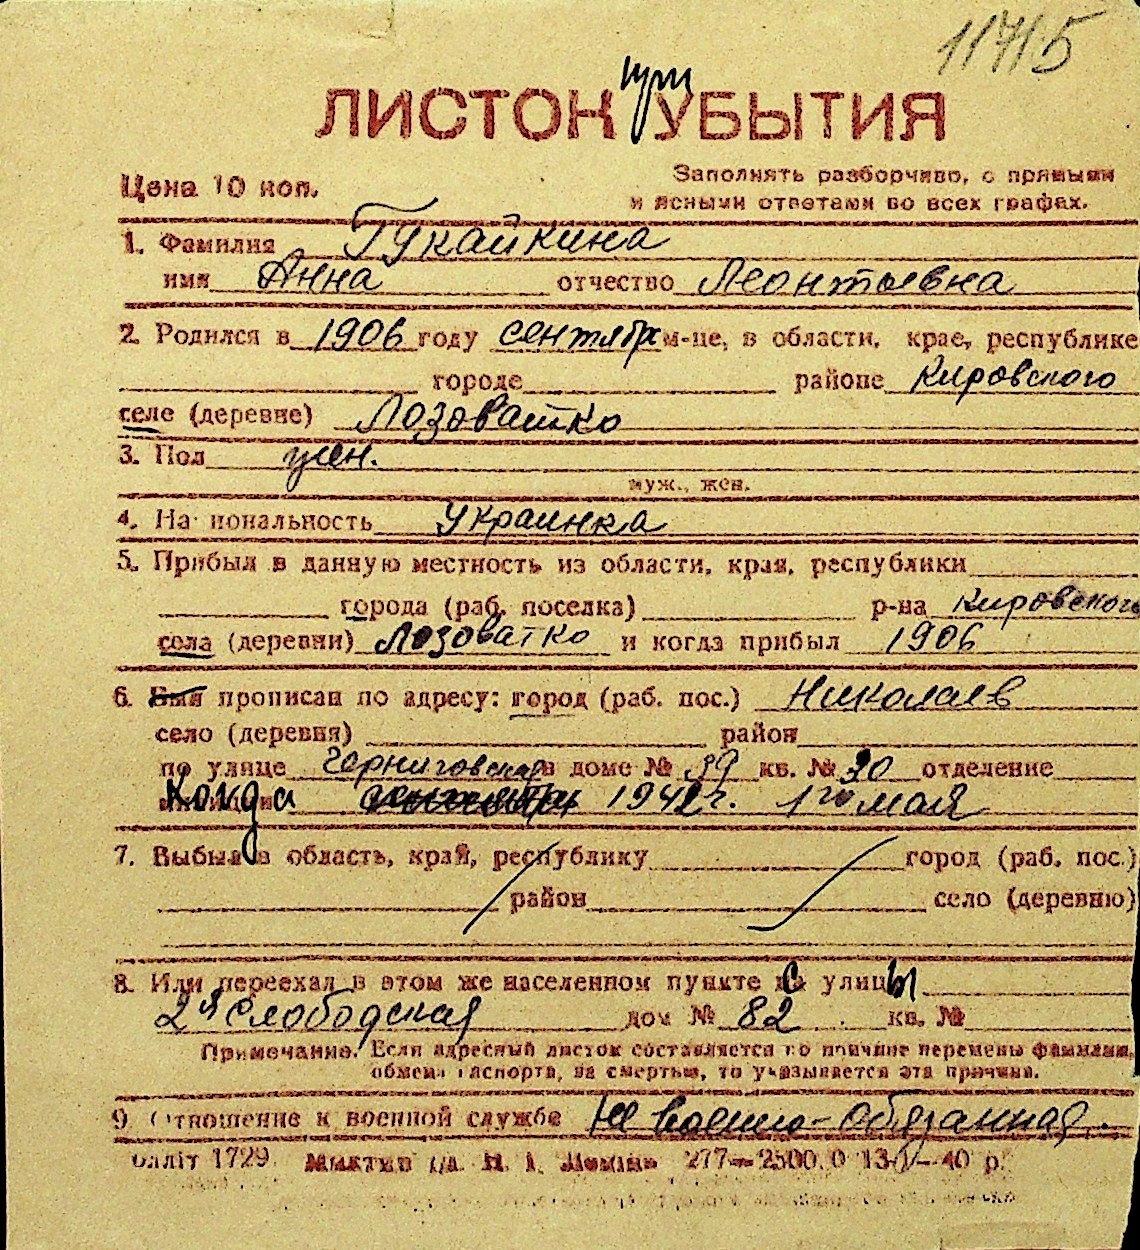 11715
ЛИСТОК при УБЫТИЯ
Цена 10 коп.
Заполнять разборчиво, с прямыми
и ясными ответами во всех графах.
1. Фамилия Гукайкина
имя Анна отчество Леонтьевна
2. Родился в 1906 году сентябр м-це, в области, крае, республике
городе районе Кировского
селе (деревне) Лозоватко
3. Пол жен.
муж., жен.
4. На иональность Украинка
5. Прибыл в данную местность из области, края, республики
города (раб. поселка) р-на Кировского
села (деревни) Лозоватко и когда прибыл 1906
6. Был прописан по адресу: город (раб. пос.) Николаев
село (деревня) район
по улице Черниговская в доме № 39 кв. № 30 отделение
Когда 1942 г. 1го мая
7. Выбыл в область, край, республику город (раб. пос.)
район село (деревню)
8. Или переехал в этом же населенном пункте с улицы
2я Слободская дом № 82 кв. №
Примечание. Если адресный листок составляется по причине перемены фамилии,
обмена паспорта, за смертью, то указывается эта причина.
9 Отношение к военной службе Не военно-обязанная.
олліт 1729. 277—2500. 0 13-V—40 р.